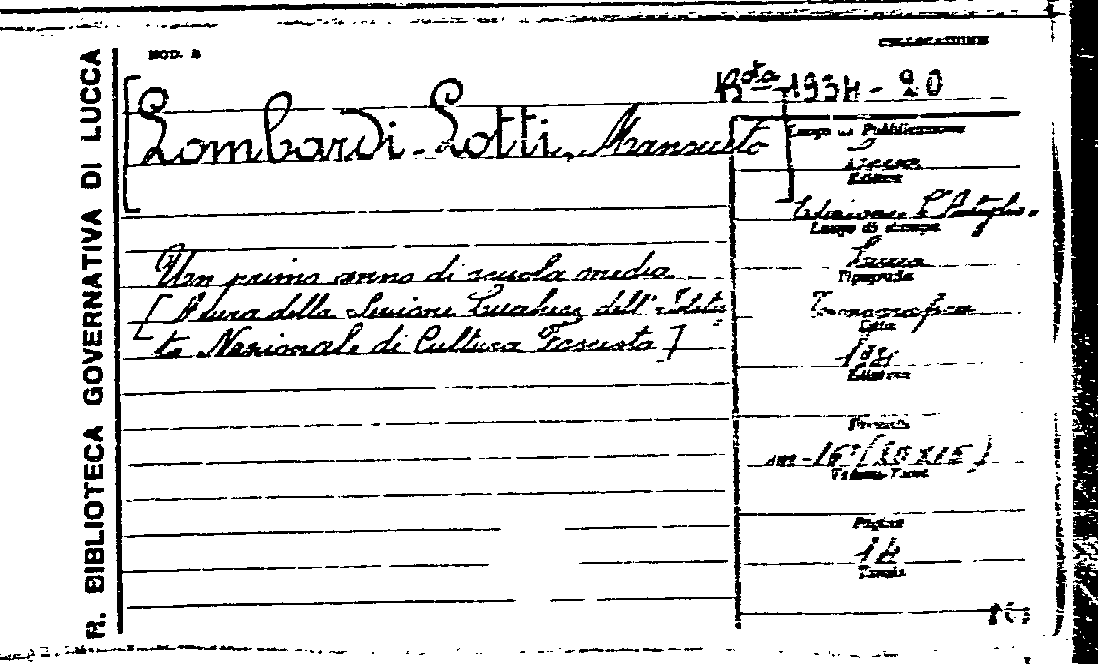 R. BIBLIOTECA GOVERNATIVA DI LUCCA
MOD. B
COLLOCAZIONE
Bta 1934-20
[Lombardi-Lotti, Mansueto]
Luogo di Pubblicazione
Lucca
Editore
Edizione L'Artiglio.
Luogo di stampa
Lucca
Tipografia
Data
Edizione
Formato
in-16° (20x15)
Volume-Tomi
Pagine
14
Tavole
Un primo anno di scuola media
[A cura della Sezione Lucchese dell' Istitu
to Nazionale di Cultura Fascista]